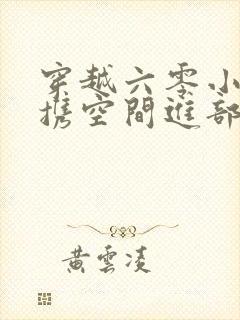 穿越六零小
携空間進部
黃雲凌